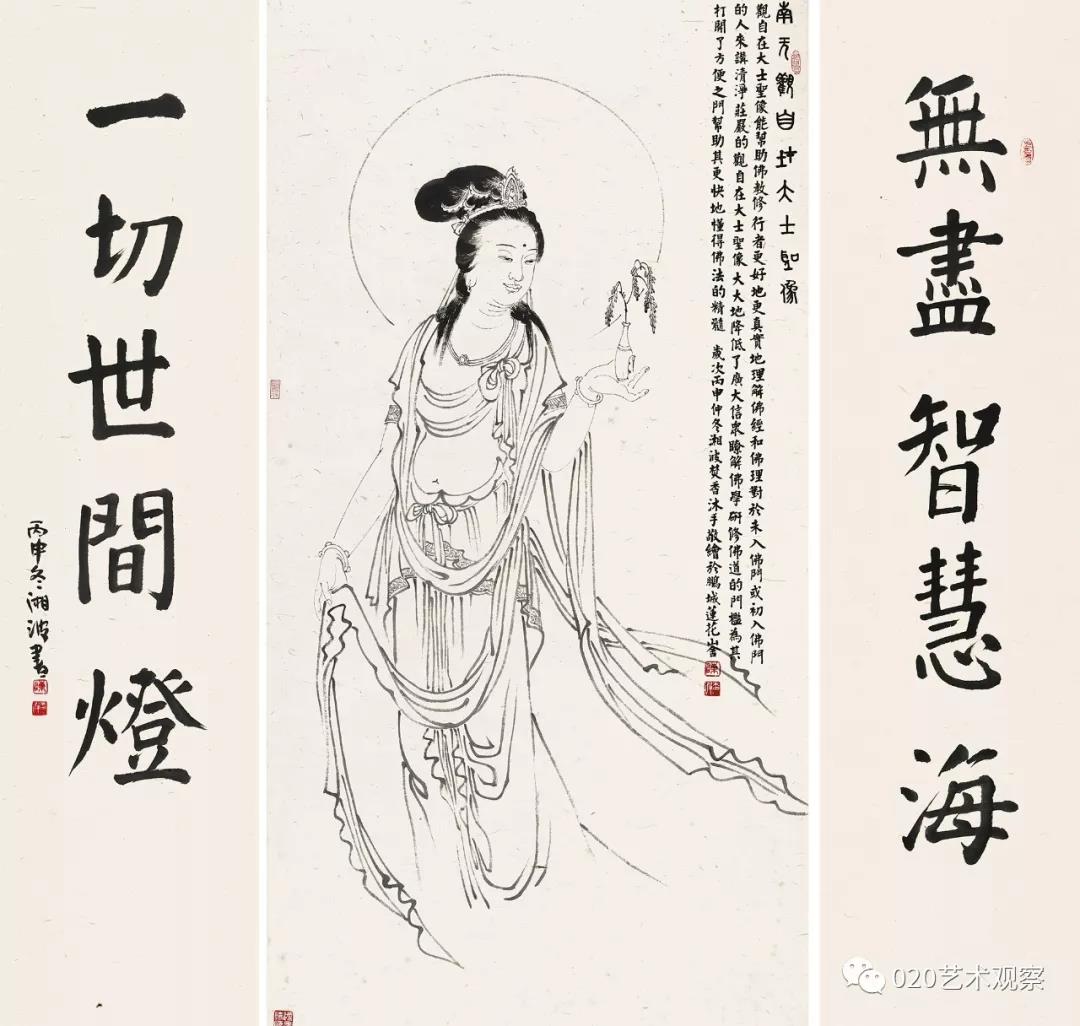 無盡智慧海
南无觀自在大士聖像
觀自在大士聖像能幫助佛教修行者更好地更真實地理解佛經和佛理對於未入佛門或初入佛門
的人來講清淨莊嚴的觀自在大士聖像大大地降低了廣大信眾瞭解佛學研修佛道的門檻為其
打開了方便之門幫助其更快地懂得佛法的精髓 歲次丙申仲冬湘波焚香沐手敬繪於鵬城蓮花山舍
一切世間燈
丙申冬湘波書
020艺术观察